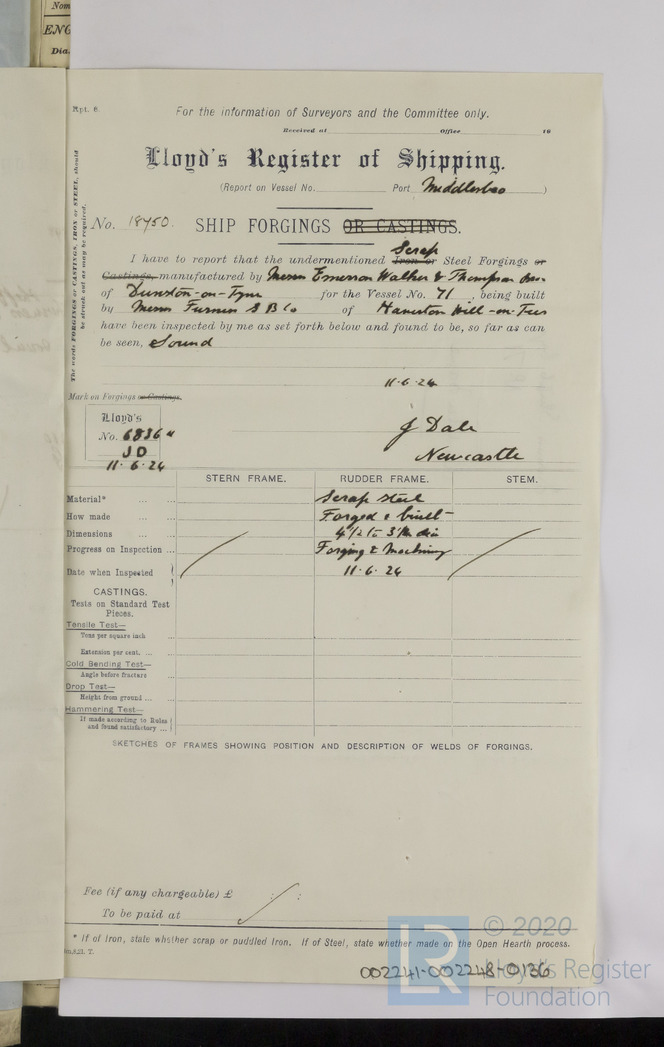 Nom
ENG
Dia.
Rpt. 6.
For the information of Surveyors and the Committee only.
Received at Office 19
Lloyd's Register of Shipping.
(Report on Vessel No. Port Middlesbro )
No. 18750. SHIP FORGINGS OR CASTINGS.
The words FORGINGS or CASTINGS, IRON or STEEL, should be struck out as may be required.
Scrap
I have to report that the undermentioned Iron or Steel Forgings or
Castings, manufactured by Messrs Emerson Walker & Thompson Bros
of Dunston-on-Tyne for the Vessel No. 71, being built
by Messrs Furness S B Co of Haverton Hill-on-Tees
have been inspected by me as set forth below and found to be, so far as can
be seen, Sound
11.6.24
Mark on Forgings or Castings.
Lloyd's
No. 6836
JD
11.6.24
J Dale
Newcastle
STERN FRAME. RUDDER FRAME. STEM.
Material* ... ... Scrap steel
How made ... ... Forged & built
Dimensions ... ... 4 1/2 to dia
Progress on Inspection ... Forging & Machining
Date when Inspected 11.6.24
CASTINGS.
Tests on Standard Test
Pieces.
Tensile Test—
Tons per square inch ...
Extension per cent. ... ...
Cold Bending Test—
Angle before fracture ...
Drop Test—
Height from ground ... ...
Hammering Test—
If made according to Rules
and found satisfactory ...
SKETCHES OF FRAMES SHOWING POSITION AND DESCRIPTION OF WELDS OF FORGINGS.
Fee (if any chargeable) £ : :
To be paid at
* If of Iron, state whether scrap or puddled Iron. If of Steel, state whether made on the Open Hearth process.
002241-002248-0136
LR
© 2020
Lloyd's Register
Foundation